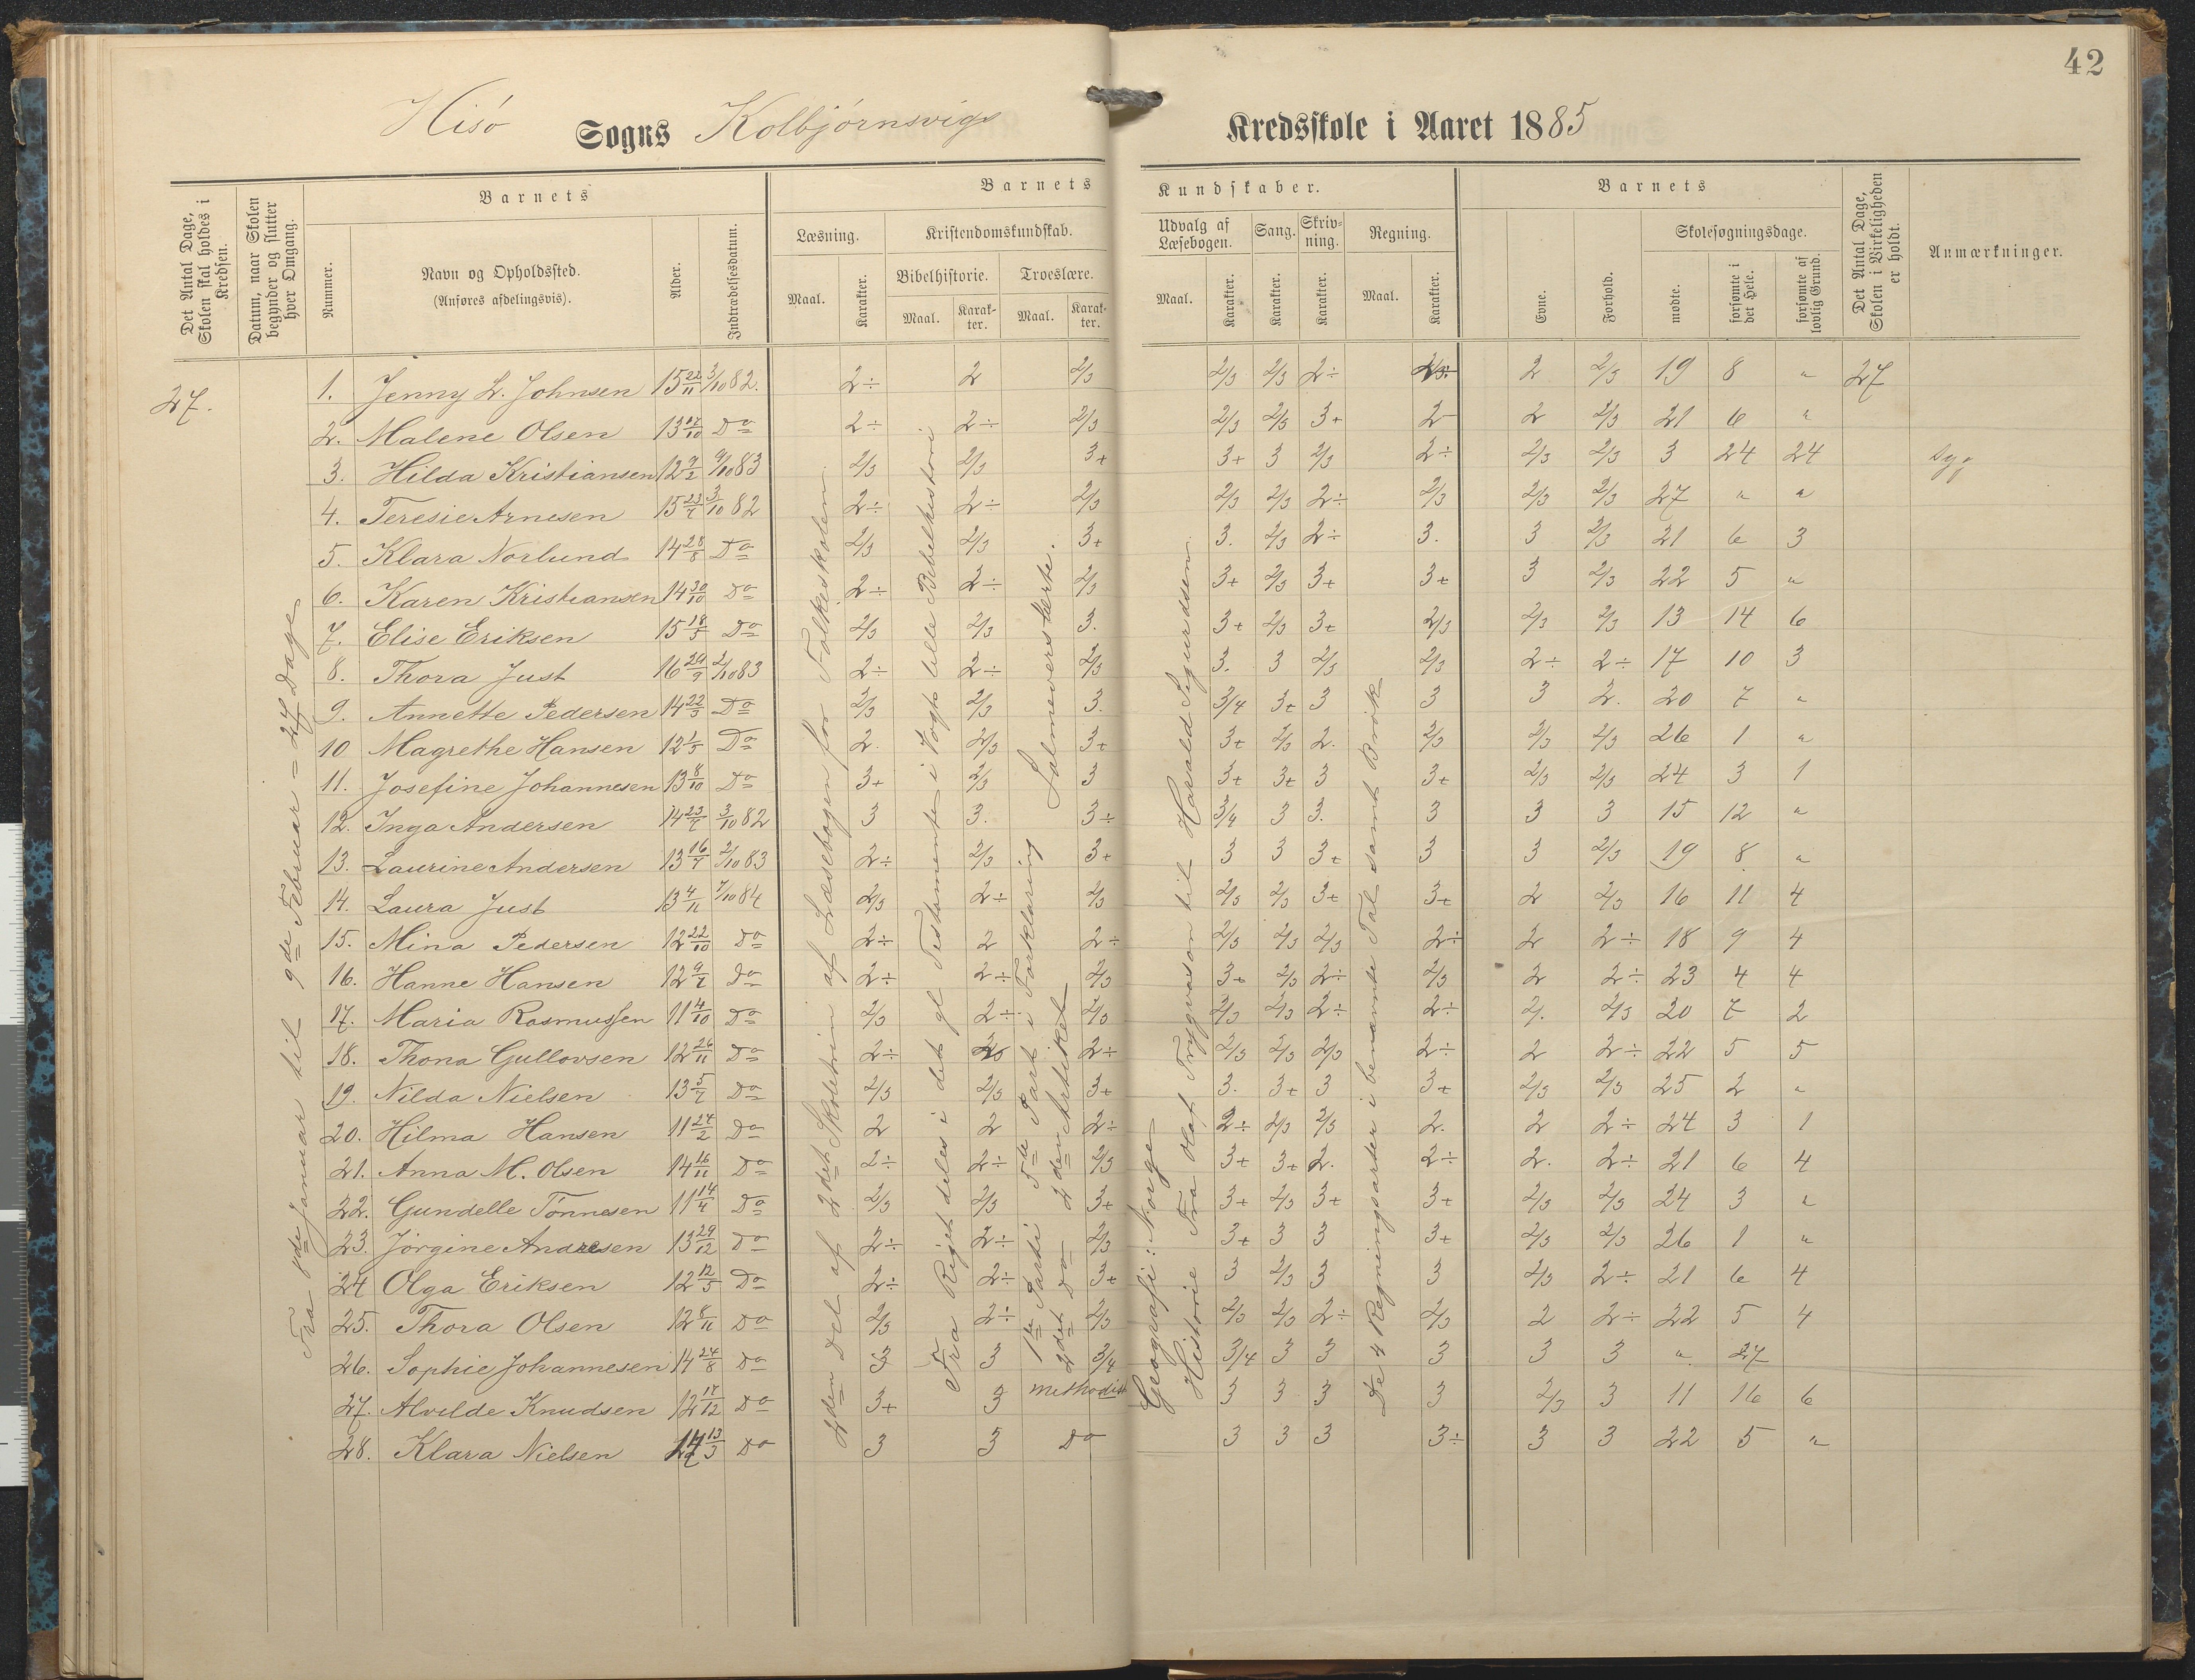 42
Hisö Sogns Kolbjörnsvigs Kredsskole i Aaret 1885
Det Antal Dage, Skolen skal holdes i Kredsen.
Datum, naar Skolen begynder og slutter hver Omgang.
Barnets
Nummer.
Navn og Opholdssted.
(Anføres afdelingsvis).
Alder.
Indtrædelsesdatum.
Barnets Kundskaber.
Læsning.
Maal.
Karakter.
Kristendomskundskab.
Bibelhistorie.
Maal.
Karakter.
Troeslære.
Maal.
Karakter.
Udvalg af Læsebogen.
Maal.
Karakter.
Sang.
Karakter.
Skrivning.
Karakter.
Regning.
Maal.
Karakter.
Barnets
Evne.
Forhold.
Skolesøgningsdage.
mødte.
forsømte i det Hele.
forsømte af lovlig Grund.
Det Antal Dage, Skolen i Virkeligheden er holdt.
Anmærkninger.
27.
Januar til 9de Februar = 27 Dage
1. Jenny L. Johnsen 15 22/11 3/10 82. 2÷ 2 2/3 2/3 2/3 2÷ 2 2/3 19 8 " 27
2. Malene Olsen 13 17/10 Do 2÷ 2÷ 2/3 2/3 2/3 3+ 2 2 2/3 21 6 "
3. Hilda Kristiansen 12 9/2 9/10 83 2/3 2/3 3+ 3+ 3 2/3 2÷ 2/3 2/3 3 24 24 syg
4. Teresie Arnesen 15 23/7 3/10 82 2÷ 2÷ 2/3 2/3 2/3 2÷ 2/3 2/3 2/3 27 " "
5. Klara Norlund 14 28/8 Do 2/3 2/3 3+ 3. 2/3 2÷ 3. 3 2/3 21 6 3
6. Karen Kristiansen 14 30/10 Do 2÷ 2÷ 2/3 3+ 2/3 3+ 3+ 3 2/3 22 5 "
7. Elise Eriksen 15 18/5 Do 2/3 2/3 3. 3+ 2/3 3+ 2/3 2/3 2/3 13 14 6
8. Thora Just 16 29/9 2/10 83 2÷ 2÷ 2/3 3. 3 2/3 2/3 2÷ 2÷ 17 10 3
9. Annette Pedersen 14 22/3 Do 2/3 2/3 3. 3/4 3+ 3 3 3 2. 20 7 "
10 Magrethe Hansen 12 1/5 Do 2. 2/3 3+ 3+ 2/3 2. 2/3 2/3 2/3 26 1 "
11. Josefine Johannesen 13 8/10 Do 3+ 2/3 3 3+ 3+ 3 3+ 2/3 2/3 24 3 1
12. Inga Andersen 14 23/7 3/10 82 3 3. 3÷ 3/4 3 3. 3 3 3 15 12 "
13. Laurine Andersen 13 16/7 2/10 83 2÷ 2/3 3+ 3 3 3+ 3 3 2/3 19 8 "
14. Laura Just 13 4/11 7/10 84 2/3 2÷ 2/3 2/3 2/3 3+ 3+ 2 2/3 16 11 4
15. Mina Pedersen 12 22/10 Do 2÷ 2 2÷ 2/3 2/3 2/3 2÷ 2 2÷ 18 9 4
16. Hanne Hansen 12 9/7 Do 2÷ 2÷ 2/3 3+ 2/3 2÷ 2/3 2 2÷ 23 4 4
17. Maria Rasmussen 11 4/10 Do 2/3 2÷ 2/3 2/3 2/3 2÷ 2÷ 2. 2/3 20 7 2
18. Thona Gullovsen 12 26/11 Do 2÷ 2÷ 2/3 2/3 2/3 2÷ 2 2÷ 22 5 5
19. Nilda Nielsen 13 5/7 Do 2/3 2/3 3+ 3. 3+ 3 3+ 2/3 2/3 25 2 "
20. Hilma Hansen 11 27/2 Do 2 2 2÷ 2÷ 2/3 2/3 2. 2 2÷ 24 3 1
21. Anna M. Olsen 14 16/11 Do 2÷ 2÷ 2/3 3+ 3+ 2. 2÷ 2. 2÷ 21 6 4
22. Gundelle Tönnesen 11 14/4 Do 2/3 2/3 3+ 3+ 2/3 3+ 3+ 2/3 2/3 24 3 "
23. Jörgine Andresen 13 29/12 Do 2÷ 2÷ 2/3 3+ 3 3 3+ 2/3 2/3 26 1 "
24 Olga Eriksen 12 12/5 Do 2÷ 2÷ 3+ 3 2/3 3 3 2/3 2÷ 21 6 4
25. Thora Olsen 12 8/11 Do 2/3 2÷ 2/3 2/3 2/3 2÷ 2/3 2 2÷ 22 5 4
26. Sophie Johannesen 14 24/8 Do 3 3 3/4 3/4 3 3 3 3 3 " 27
27. Alvilde Knudsen 12 17/12 Do 3+ 3 Methodist 3 3 3 3 2/3 3 11 16 6
28. Klara Nielsen 14 13/3 Do 3 3 Do 3 3 3 3÷ 3 3 22 5 "
2den Del af 2det Skoletrin af Læsebogen for Folkeskolen.
Fra Riget deles i det gl Testamente i Vogts lille Bibelhistori
1ste Parti 5te Part i Forklaring
2det Do 2den Artikel
Salmevers lærte.
Geografi: Norge
Historie Fra Olaf Trygvason til Harald Sigurdsen.
De 4 Regningsarter i benævnte Tal samt Brök